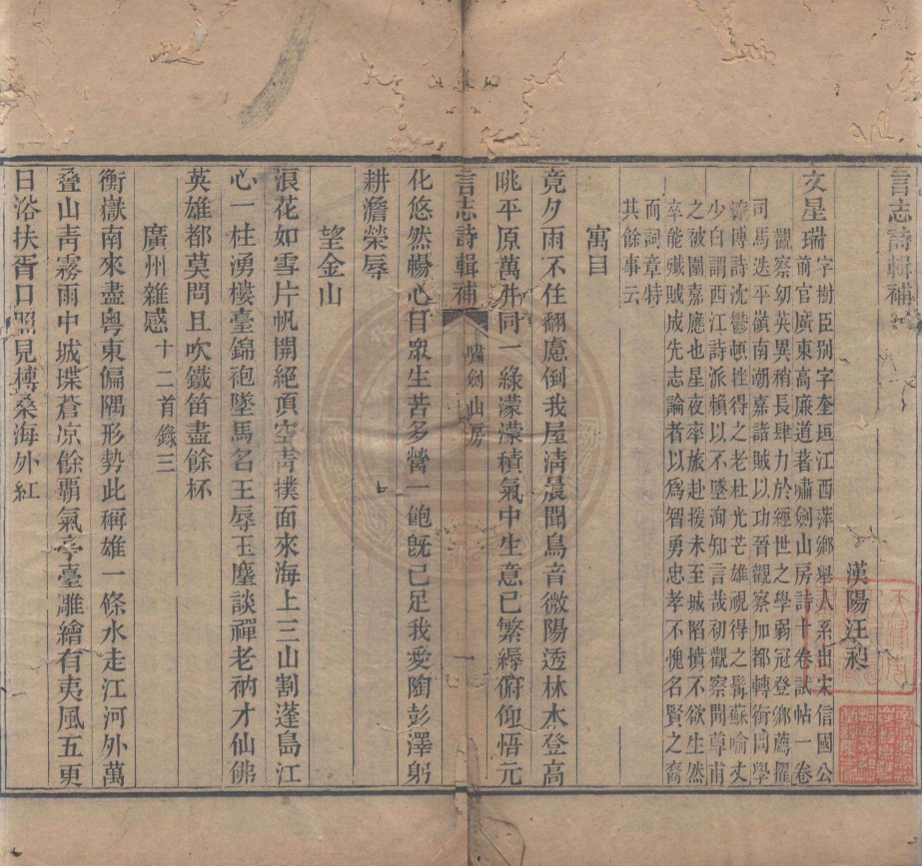 言志詩輯補
漢陽汪昶
文星瑞字樹臣別字奎垣江西萍鄉舉人系出宋信國公
前官廣東高廉道著嘯劍山房詩十卷試帖一卷
觀察幼英異稍長肆力於經世之學弱冠登鄉薦擢
司馬迭平嶺南潮嘉諸賊以功晉觀察加都轉銜問學
博詩沈鬱頓挫得之老杜光芒雄視得之髯蘇喻丈
少白謂西江詩派賴以不墜洵知言哉初觀察聞尊甫
之被圍嘉應也星夜率旅赴援未至城陷憤不欲生然
卒能殲賊成先志論者以為智勇忠孝不愧名賢之裔
而詞章特
其餘事云
寓目
竟夕雨不住翻慮倒我屋淸晨聞鳥音微陽透林木登高
眺平原萬井同一綠濛濛積氣中生意已繁縟俯仰悟元
言志詩輯補
嘯劍山房
一
化悠然暢心目衆生苦多營一飽旣已足我愛陶彭澤躬
耕澹榮辱
望金山
浪花如雪片帆開絕頂空靑撲面來海上三山割蓬島江
心一柱湧樓臺錦袍墜馬名王辱玉麈談禪老衲才仙佛
英雄都莫問且吹鐵笛盡餘杯
廣州雜感十二首錄三
衡嶽南來盡粵東偏隅形勢此稱雄一條水走江河外萬
疊山靑霧雨中城堞蒼凉餘霸氣亭臺雕繪有夷風五更
日浴扶胥口照見榑桑海外紅